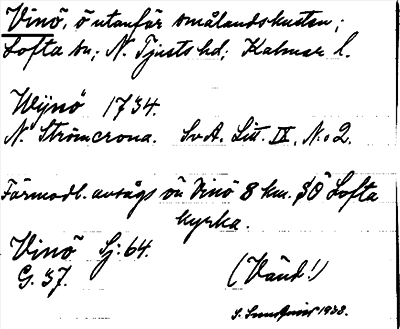 Vinö, ö utanför Smålandskusten;
Lofta sn; N. Tjusts hd; Kalmar l.
Wÿnö 1734.
N. Strömcrona. SvA. Litt. IX, N:o 2.
Förmodl. avsågs ön Vinö 8 km. SÖ Lofta
kyrka.
Vinö Sj: 64.
G. 37.
(Vänd!)
1933.